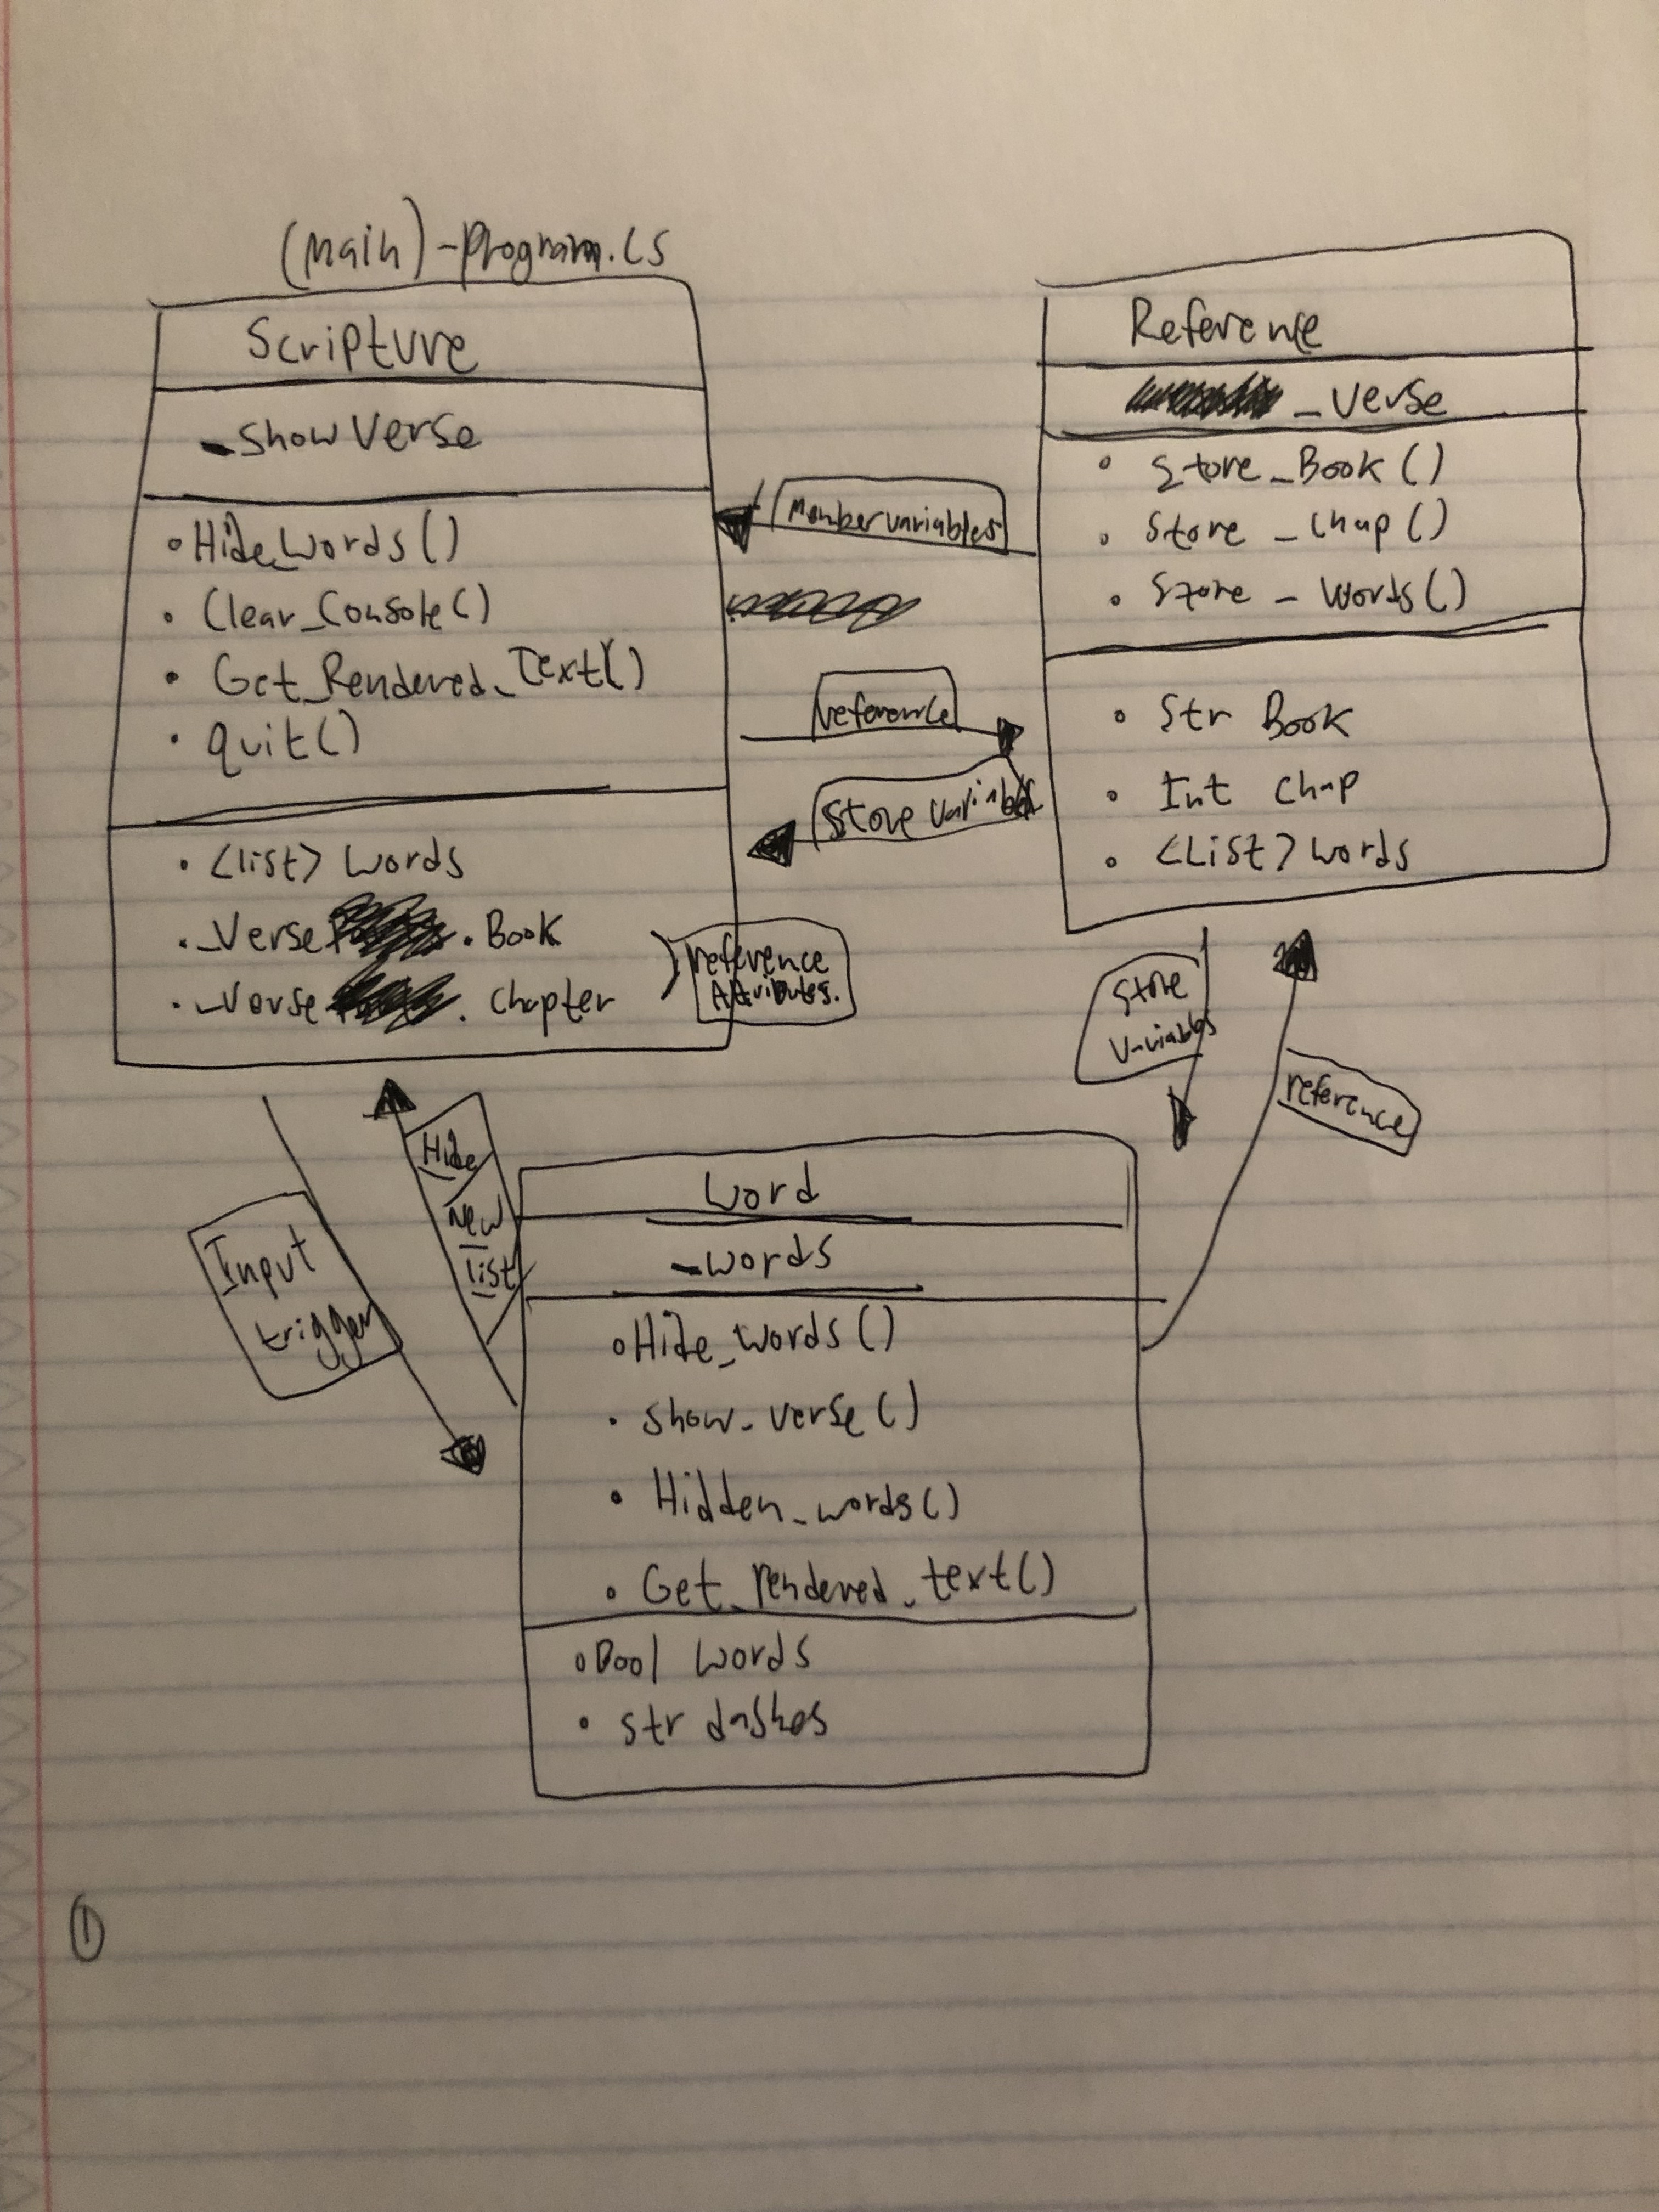 (Main)-Program.cs
Scripture
_showVerse
•Hide_words()
• Clear_Console()
• Get_Rendered_Text()
• quit()
• <list> words
• _Verse . Book
• _Verse . Chapter
reference
Attributes.
Member variables
reference
Store variables
Reference
_verse
• Store_Book()
• Store_Chap()
• Store_Words()
• Str Book
• Int Chap
• <List> words
Store
Variables
reference
Input
trigger
Hide
new
list
Word
_words
•Hide_words()
• show_verse()
• Hidden_words()
• Get_rendered_text()
•Bool words
• str dashes
①